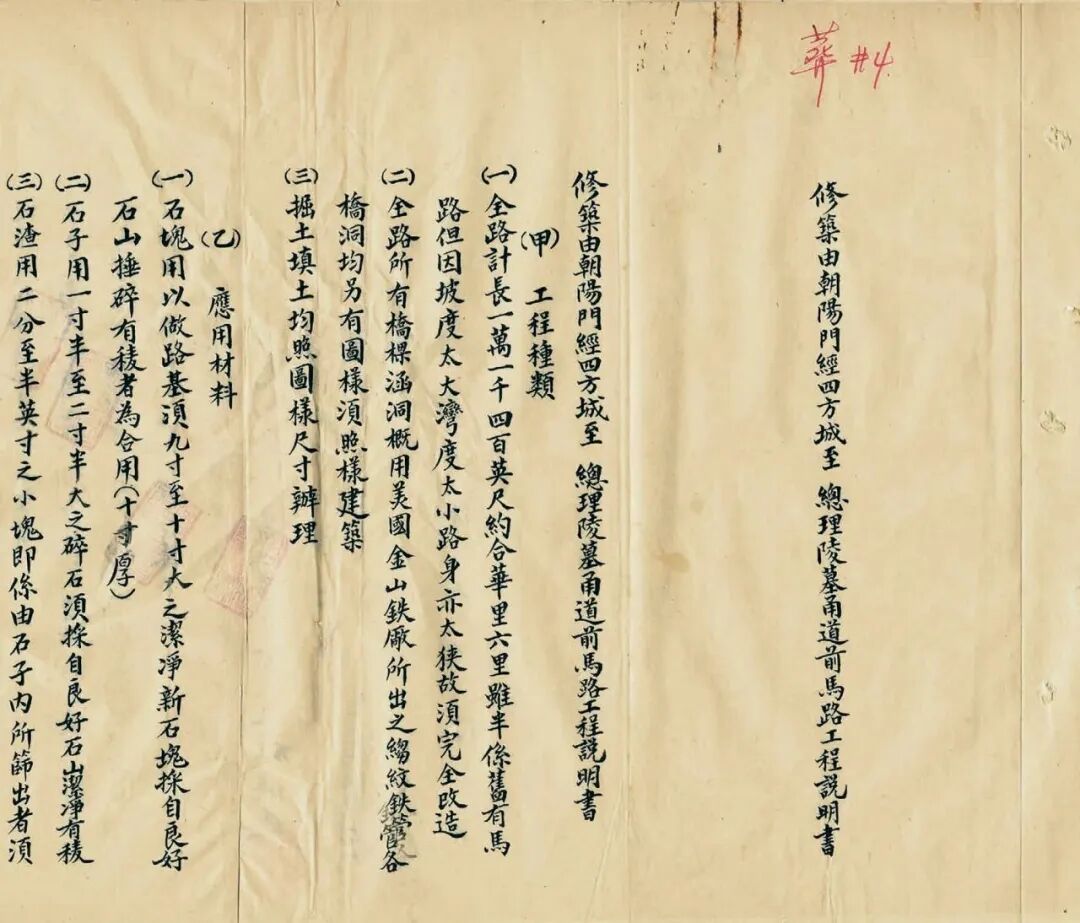 葬#4
修築由朝陽門經四方城至 總理陵墓甬道前馬路工程説明書
修築由朝陽門經四方城至 總理陵墓甬道前馬路工程説明書
(甲) 工程種類
(一)全路計長一萬一千四百英尺約合華里六里雖半係舊有馬
路但因坡度太大灣度太小路身亦太狹故須完全改造
(二)全路所有橋樑涵洞概用美國金山鉄廠所出之縐紋鉄管各
橋洞均另有圖樣須照樣建築
(三)掘土填土均照圖樣尺寸辦理
(乙) 應用材料
(一)石塊用以做路基須九寸至十寸大之潔凈新石塊採自良好
石山捶碎有稜者為合用(十寸厚)
(二)石子用一寸半至二寸半大之碎石須採自良好石山潔凈有稜
(三)石渣用二分至半英寸之小塊即係由石子内所篩出者須